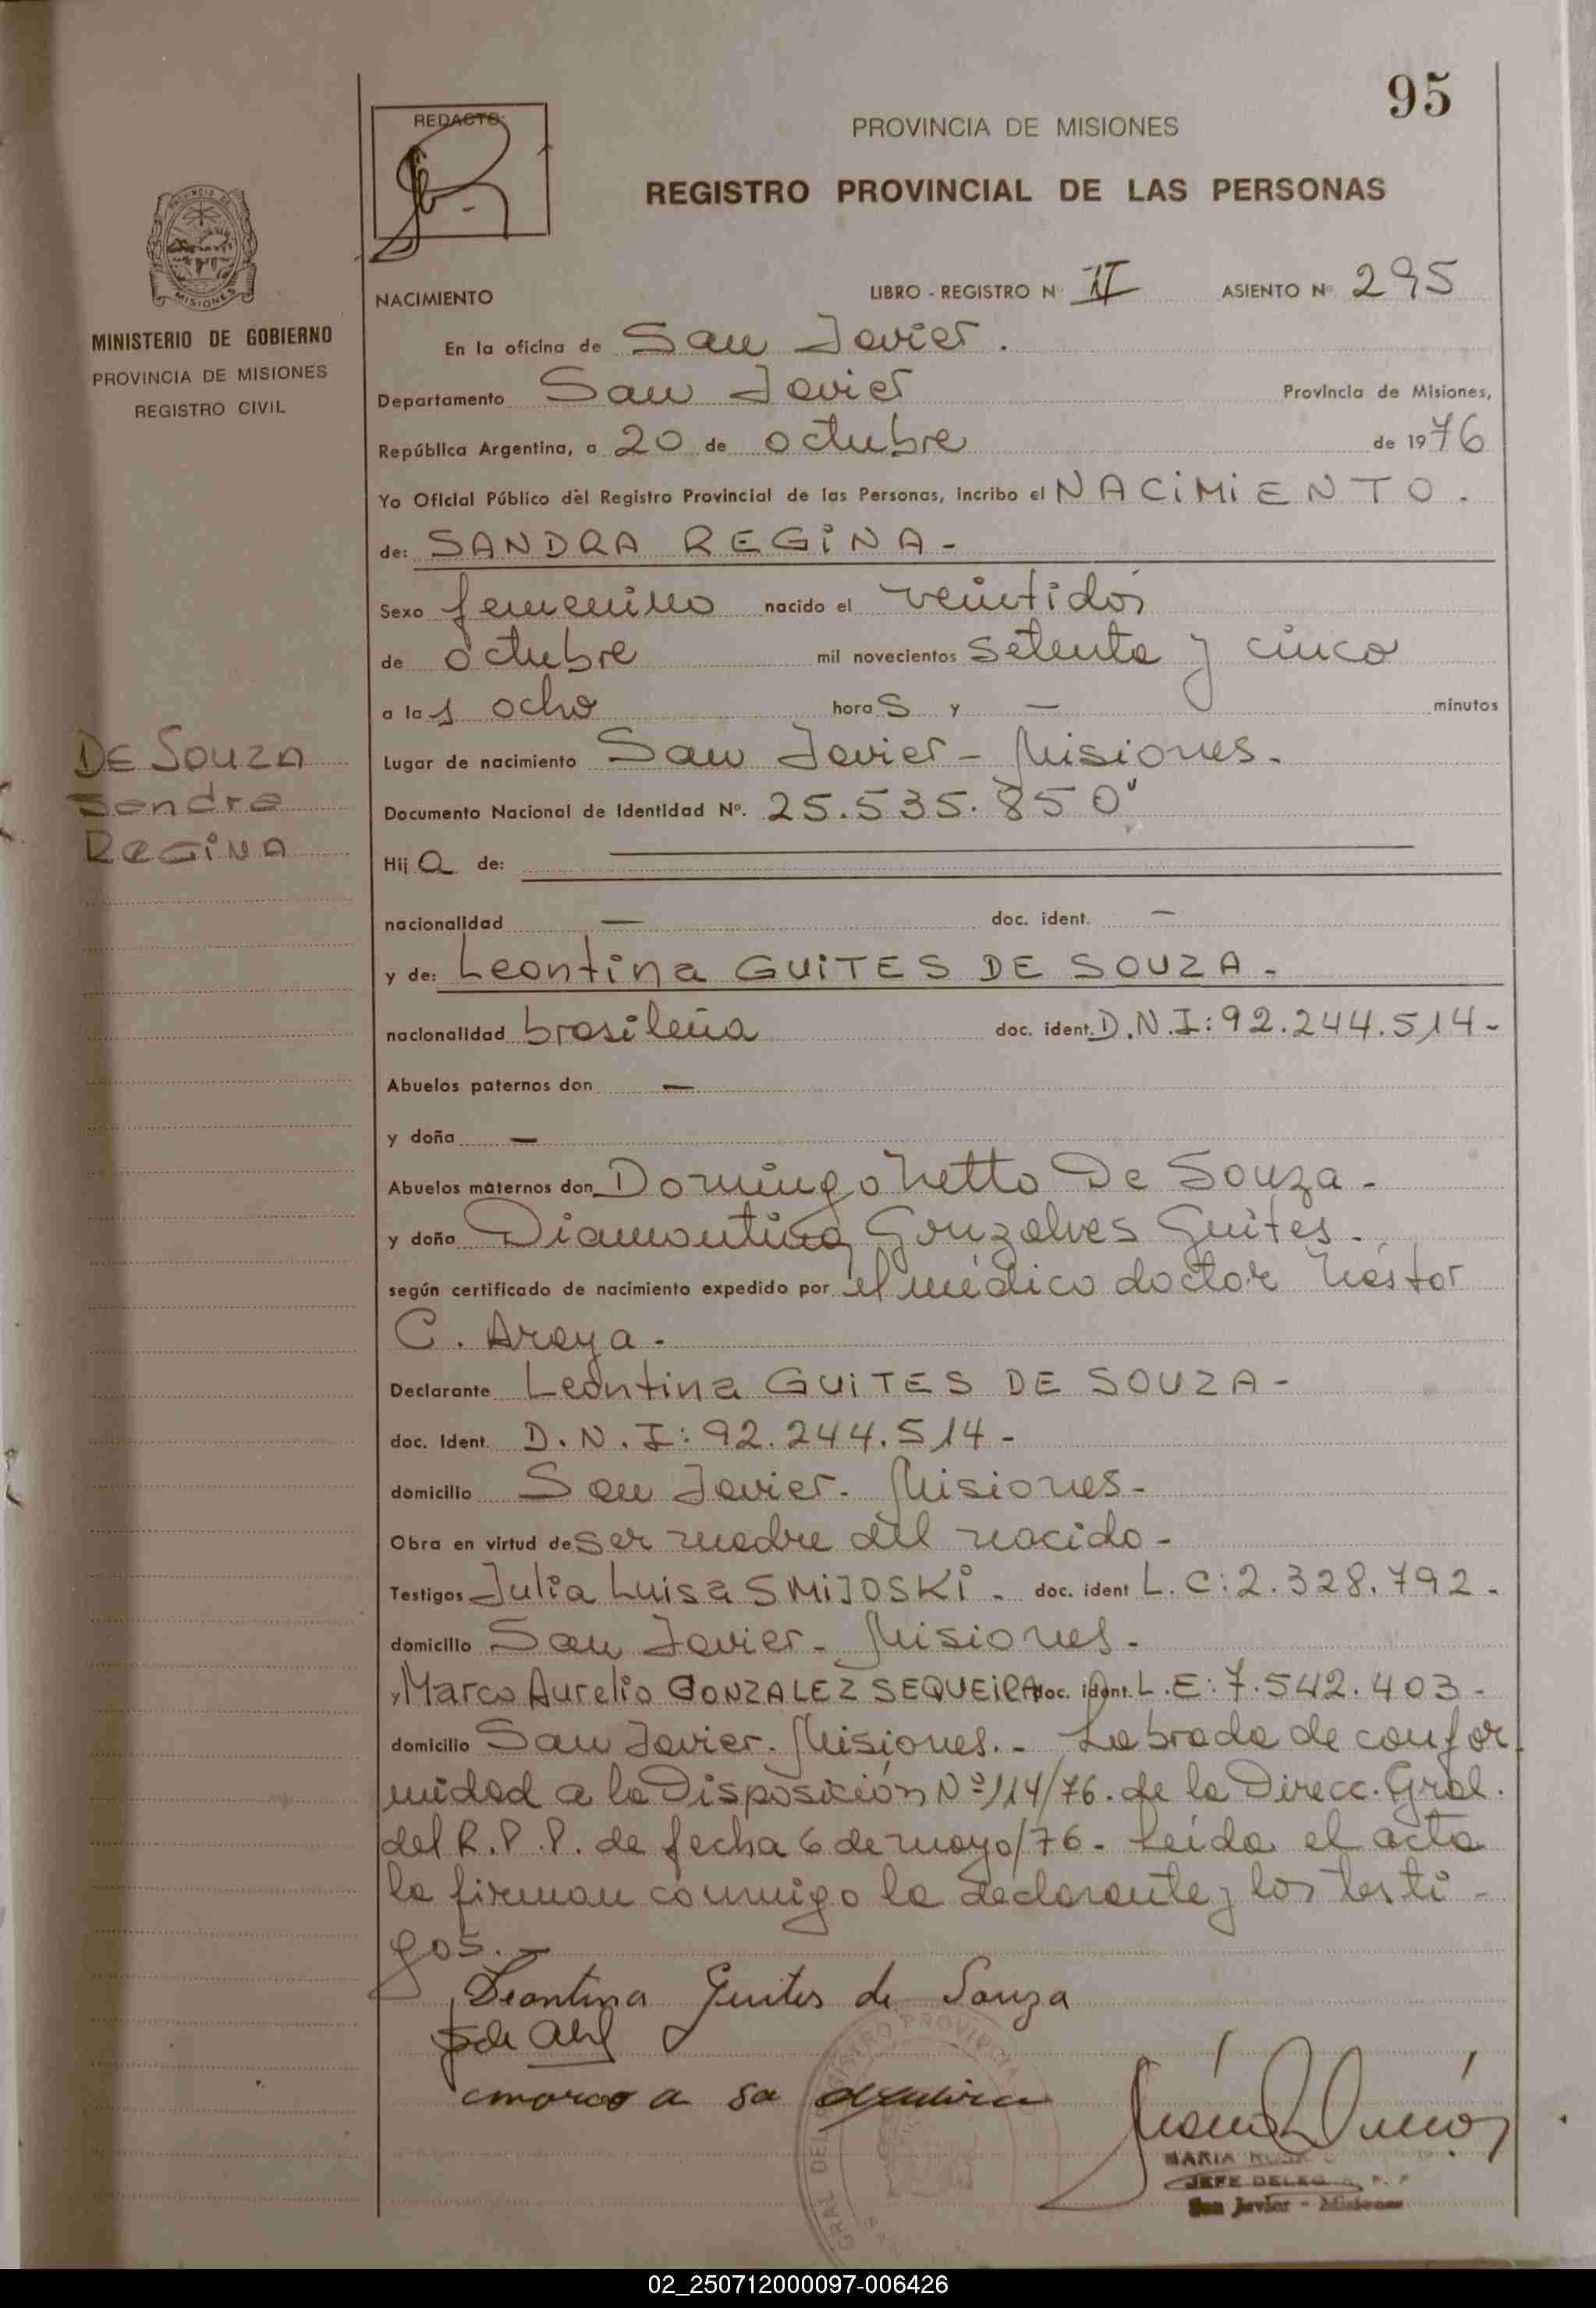 95
REDACTO:
PROVINCIA DE MISIONES
REGISTRO PROVINCIAL DE LAS PERSONAS
MISIONES
MINISTERIO DE GOBIERNO
PROVINCIA DE MISIONES
REGISTRO CIVIL
NACIMIENTO LIBRO - REGISTRO N° II ASIENTO N° 295
En la oficina de San Javier.
Departamento San Javier Provincia de Misiones,
República Argentina, a 20 de octubre de 1976
Yo Oficial Público del Registro Provincial de las Personas, incribo el NACIMIENTO.
de: SANDRA REGINA-
Sexo femenino nacido el veintidós
de octubre mil novecientos setenta y cinco
a las ocho horas y — minutos
DE SOUZA
Sandra
REGINA
Lugar de nacimiento San Javier - Misiones.
Documento Nacional de Identidad N°. 25.535.850
Hija de:
nacionalidad — doc. ident. —
y de: Leontina GUITES DE SOUZA -
nacionalidad brasileña doc. ident. D.N.I: 92.244.514-
Abuelos paternos don —
y doña —
Abuelos maternos don Domingo Netto De Souza -
y doña Diamontina Gonzalves Guites.
según certificado de nacimiento expedido por el médico doctor Néstor
C. Araya -
Declarante Leontina GUITES DE SOUZA -
doc. Ident. D.N.I: 92.244.514 -
domicilio San Javier - Misiones -
Obra en virtud de ser madre del nacido -
Testigos Julia Luisa SMIJOSKI - doc. ident L.C: 2.328.792 -
domicilio San Javier - Misiones -
y Marco Aurelio GONZALEZ SEQUEIRA doc. ident. L.E: 7.542.403 -
domicilio San Javier - Misiones. - Labrada de confor
midad a la Disposición Nº 114/76. de la Direcc. Gral.
del R.P.P. de fecha 6 de mayo/76 - Leida el acta
la firman conmigo la declarante y los testi -
gos. -
Leontina Guites de Souza
MARIA ROSA
JEFE DELEG. R. P. P
San Javier - Misiones
02_250712000097-006426